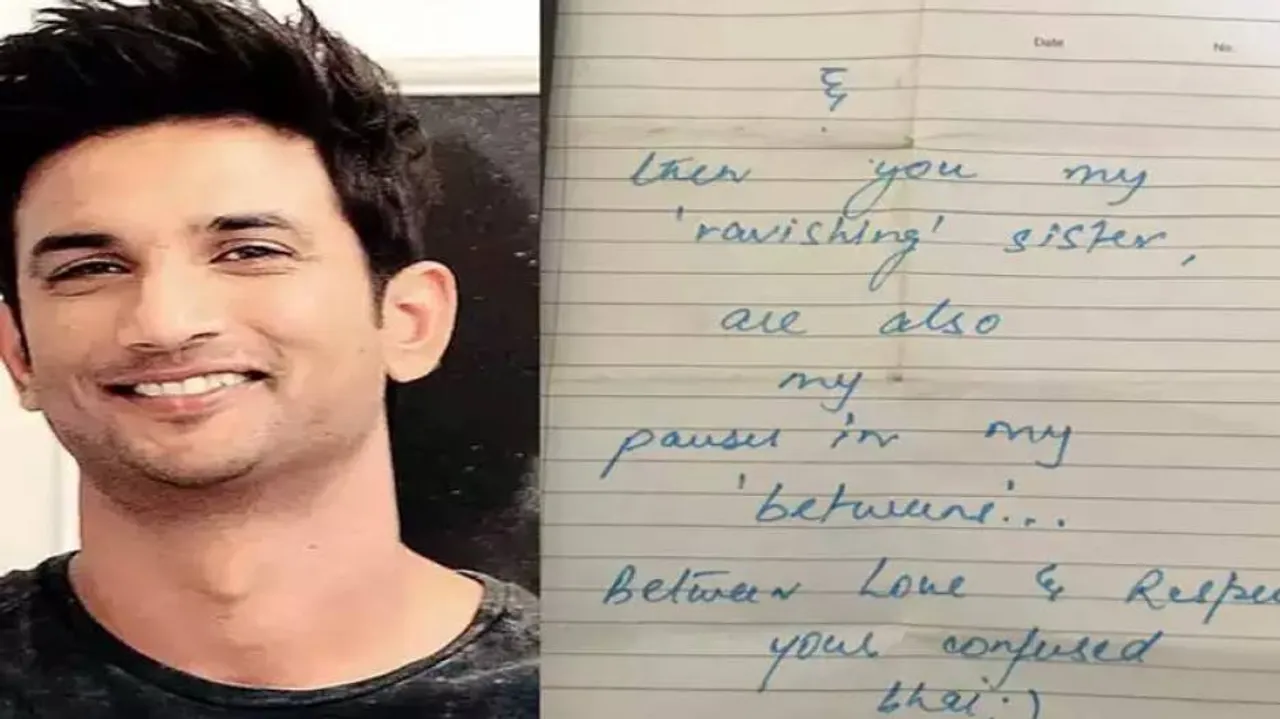 Date No.
&
then you my
'ravishing' sister,
are also
my
pauses in my
'betweens'...
Between Love & Respe
your confused
bhai :)